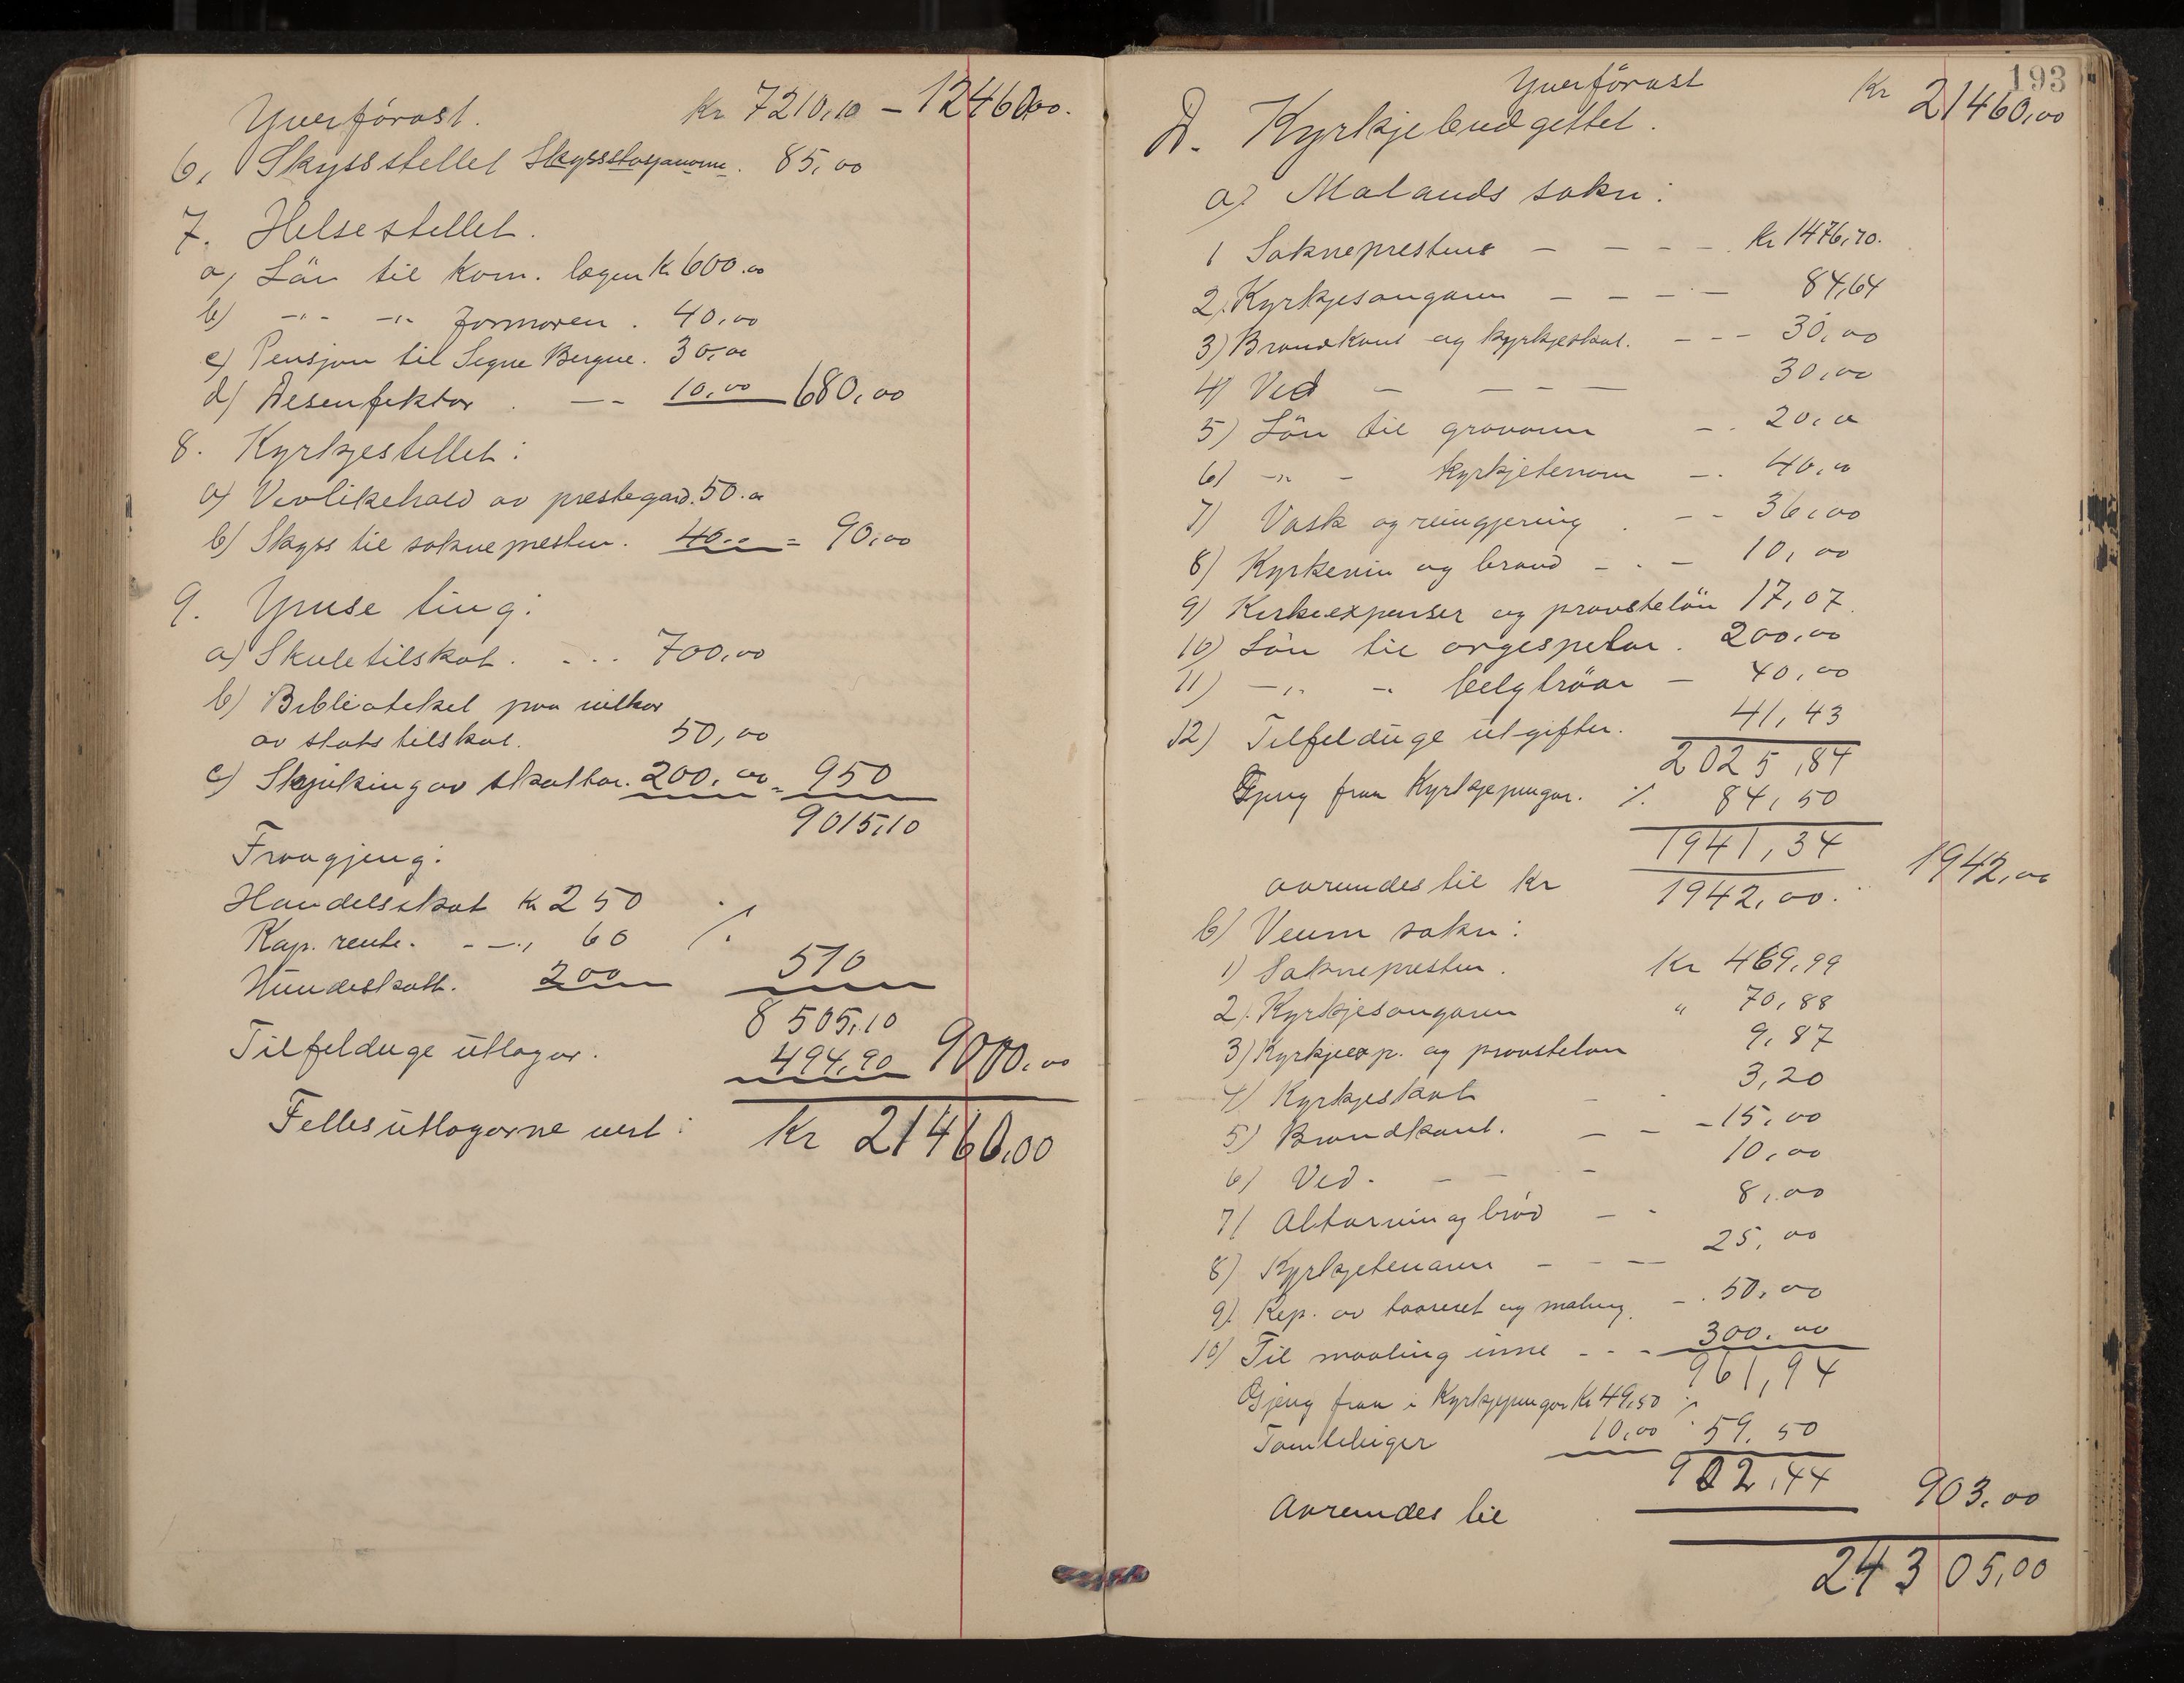 Yverförast. Kr 7210,10 – 12460,00.
6, Skyssstellet Skyssstasjonerne. 85,00
7. Helsestellet.
a, Lön til kom. lægen Kr 600.00
b) -"- -"- Jormoren . 40,00
c) Pensjon til Signe Bergne. 30,00
d) Desenfektor . — - 10,00 680,00
8. Kyrkjestellet:
a) Vevlikehald av prestegard. 50.00
b) Skyss til soknepresten. 40.00 = 90,00
9. Ymse ting:
a) Skuletilskot. . .. 700,00
b) Biblioteket paa vilkor
av statstilskot. 50,00
c) Skjenking av skattar. 200,00 = 950
9015,10
Fraagjeng:
Handelsskat Kr 250
Kap. rente. - —, 60 ./.
Hundeskatt. 200 510
8505,10
Tilfelduge utlogor. 494,90 9000.00
Fellesutlogorne vert: Kr 21460,00
193
Yverförast Kr 21460,00
D. Kyrkjebudgettet.
a) Molands sokn:
1 Sokneprestene — — - - Kr 1476,70.
2. Kyrkjesongaren — — - — 84,64
3) Brandkont og kyrkjeskat. - - - 30,00
4) Ved — — - — 30,00
5) Lön til gravaren -. 20,00
6) -"- - kyrkjetenarn -. 40,00
7) Vask og reingjering . - - 36,00
8) Kyrkevin og braud - . - 10,00
9) Kirkeexpenser og provstelön 17,07.
10) Lön til orgespelar . 200,00
11) -"- -" belgtröar - 40,00
12) Tilfelduge utgifter. 41,43
2025,84
Gjeng fraa Kyrkjepengar. ./. 84,50
1941,34
avrundes til Kr 1942,00. 1942,00
b) Veum sokn:
1) Soknepresten. Kr 469,99
2). Kyrkjesongaren " 70,88
3) Kyrkjeexp. og provstelön 9,87
4) Kyrkjeskat - - 3,20
5) Brandkont. — - - 15,00
6) Ved. - - 10,00
7) Altarvin og bröd — - 8,00
8) Kyrkjetenaren - - — 25,00
9). Rep. av taarnet og maling. - . 50,00
10) Til maaling inne - - - 300.00
961,94
Gjeng fraa i Kyrkjepengar Kr 49,50 ./.
Tomtebiger 10,00 59,50
902,44
Avrundes til 903.00
24305,00